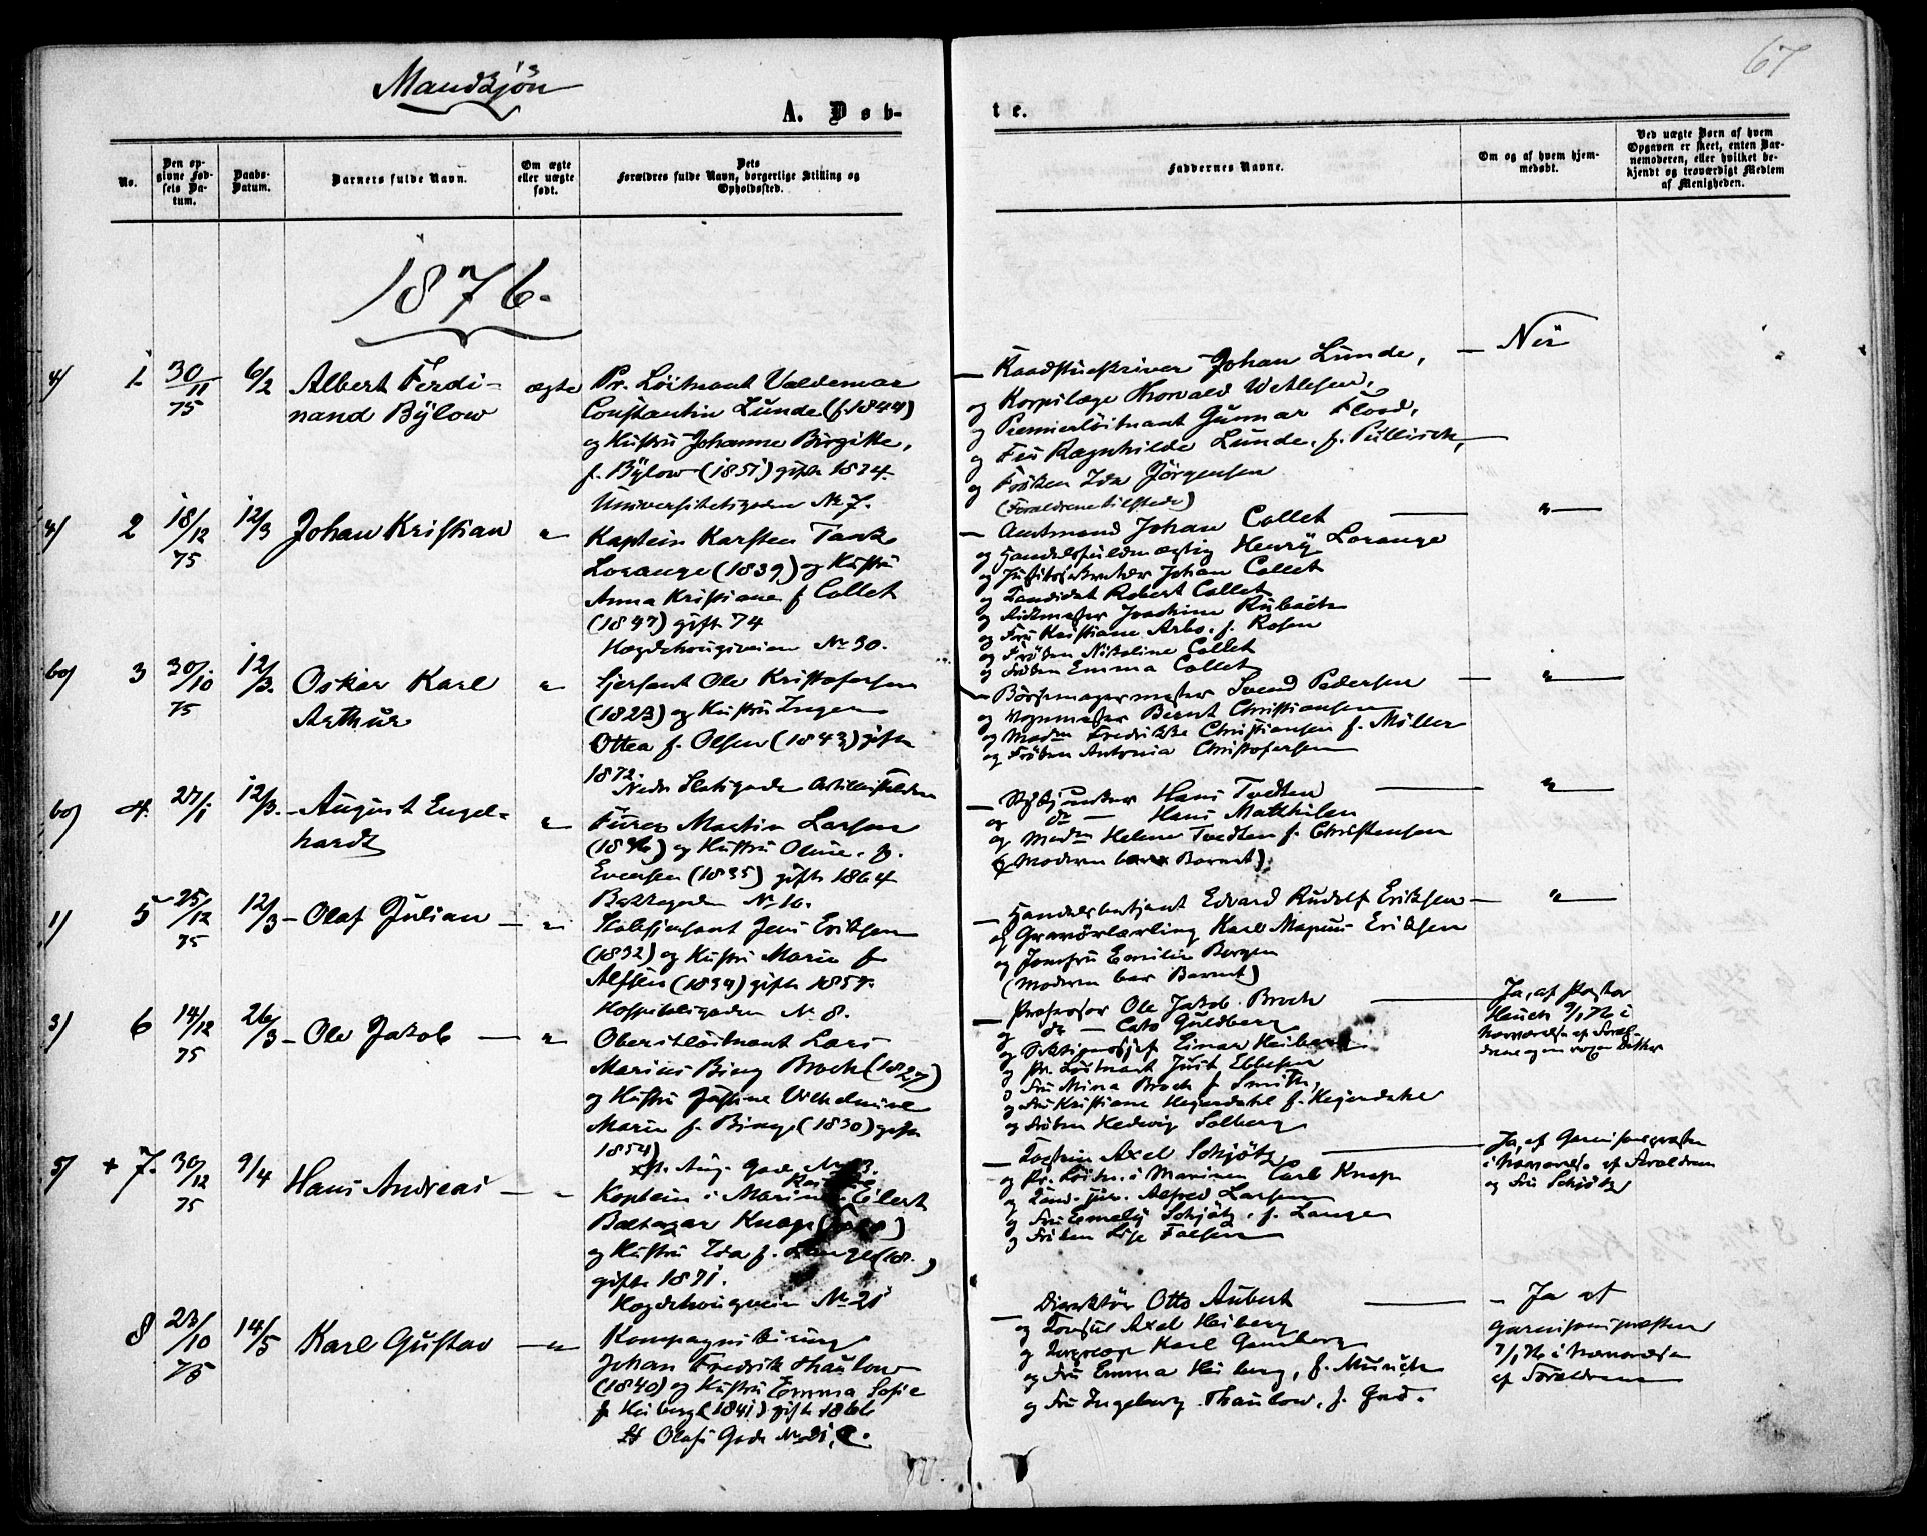 67
Mandkjön
A. Døb-
te.
No.
Den op-
givne Fød-
sels Da-
tum.
Daabs-
Datum.
Barnets fulde Navn.
Om ægte
eller uægte
født.
Dets
Forældres fulde Navn, borgerlige Stilling og
Opholdssted.
Faddernes Navne.
Om og af hvem hjem-
medøbt.
Ved uægte Børn af hvem
Opgaven er skeet, enten Bar-
nemoderen, eller hvilket be-
kjendt og troværdigt Medlem
af Menigheden.
1876.
4/ 1. 30/11 75 6/2
Albert Ferdi-
nand Bÿlow
ægte
Pr. Löitnant Valdemar
Constantin Lunde (f. 1844)
og Hustru Johanne Birgitte,
f. Bÿlow (1851) gifte 1874.
Universitetsgaden No 7.
— Raadstueskriver Johan Lunde,
og Korpslæge Thorvald Wetlesen,
og Premierlöitnant Gunnar Flood,
og Fru Ragnhilde Lunde, f.
og Fröken Ida Jörgensen
(Forældrene tilstede)
— Nei
2 18/12 75 12/3
Johan Kristian
"
Kaptein Karsten Tank
Lorange (1839) og Hustru
Anna Kristiane f Collet
(1847) gifte 74
Hægdehougsveien No 30.
— Amtmand Johan Collet
og Handelsfuldmægtig Henrÿ Lorange
og Johan Collet
og Kandidat Robert Collet
og Ritmester Joachim Rubach
og Fru Kristiane Arbo, f. Rosen
og Fröken Nikoline Collet
og Fröken Emma Collet
"
60/ 3 30/10 75 12/3.
Oskar Karl
Arthur
"
Sjersant Ole Kristofersen
(1823) og Hustru Inger
Ottea f. Olsen (1843) gifte
1872.
Nedre Slotsgade
— Börsemagermester Svend Pedersen
og Vognmester Bernt Christiansen
og Madm Fredrikke Christiansen f. Möller
og Fröken Antonia Christofersen
"
60/ 4. 27/1 12/3.
— August Engel-
hardt
"
Furer Martin Larsen
og Hustru Oline, f.
Evensen (1835) gifte 1864
Bakkegaden No 16.
— Hans Tvedten
og do — Hans Mathisen
og Madm Helene Tvedten f. Christensen
(Moderen bar Barnet).
"
1/ 5 25/12 75 12/3
— Olaf Julian —
"
Stabssjersant Jens Eriksen
(1832) og Hustru Marie f
Alfsen (1834) gifte 1857.
Hospitalsgaden No 8.
— Handelsbetjent Edvard Rudolf Eriksen
og Gravörlærling Karl Magnus Eriksen
og Jomfru Emilie Borgen
(Moderen bar Barnet)
"
3/ 6 14/12 75 26/3
— Ole Jakob —
"
Oberstlöitnant Lars
Marius Bing Broch (1827)
og Hustru Justine Vilhelmine
Marie f. Bing (1830) gifte
1854)
— Professor Ole Jakob Broch
og do — Cato Guldberg
og Einar Heiberg
og Pr. Löitnant Just Ebbesen
og Fru Mina Broch f Smith,
og Fru Kristiane Hegerdahl f. Hegerdahl
og Fröken Hedevig Solberg
Ja, af Pastor
Heuch 9/1 76 i
Nærværelse af Foræl-
drene og en voxen Datter
5/ + 7. 30/12 75 9/4
Hans Andreas —
"
Kaptein i Marinen Eilert
Baltazar Knap
og Hustru Ida f. Lange
gifte 1871.
Hægdehougsveien No 21
— Kaptein Axel Schjötz
og Pr. Löitn. i Marinen Carl Knap
og Kand. jur. Alfred Larsen
og Fru Emely Schjötz, f. Lange
og Fröken Lise Falsen
Ja, af Garnisonspræsten
i Nærværelse af Forældrene
og Fru Schjötz
8 23/10 75 14/5
Karl Gustav
— "
Kompagnikirurg
Johan Fredrik Thaulow
(1840) og Hustru Emma Sofie
f. Heiberg (1841) gifte 1866
St Olafs Gade No 21, C.
— Direktör Otto Aubert
og Konsul Axel Heiberg
og Korpslæge Karl
og Fru Emma Heiberg, f. Munch
og Fru Ingeborg Thaulow, f. Gad.
— Ja af
Garnisonspræsten
7/1 76 i Nærværelse
af Forældrene